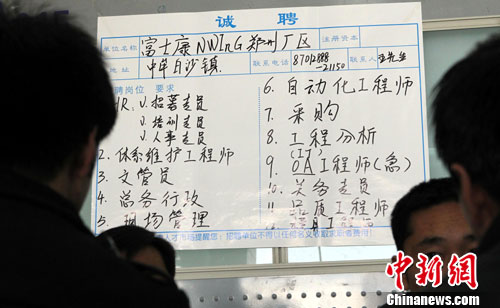 诚 聘
单位名称 富士康NWInG郑州厂区 注册资本
地址 中牟白沙镇 联系电话 87012888 联系人 王先生
-21150
聘岗位 要求
HR. J. 招募专员
J. 培训专员
J. 人事专员
2. 体系维护工程师
3. 文管员
4. 总务行政
5. 现场管理
6. 自动化工程师
7. 采购
8. 工程分析
(IT)
9. OA工程师(急)
10. 关务专员
11. 品质工程师
提醒您：招聘单位不得以任何名义收取求职者费用！
中新网
Chinanews.com